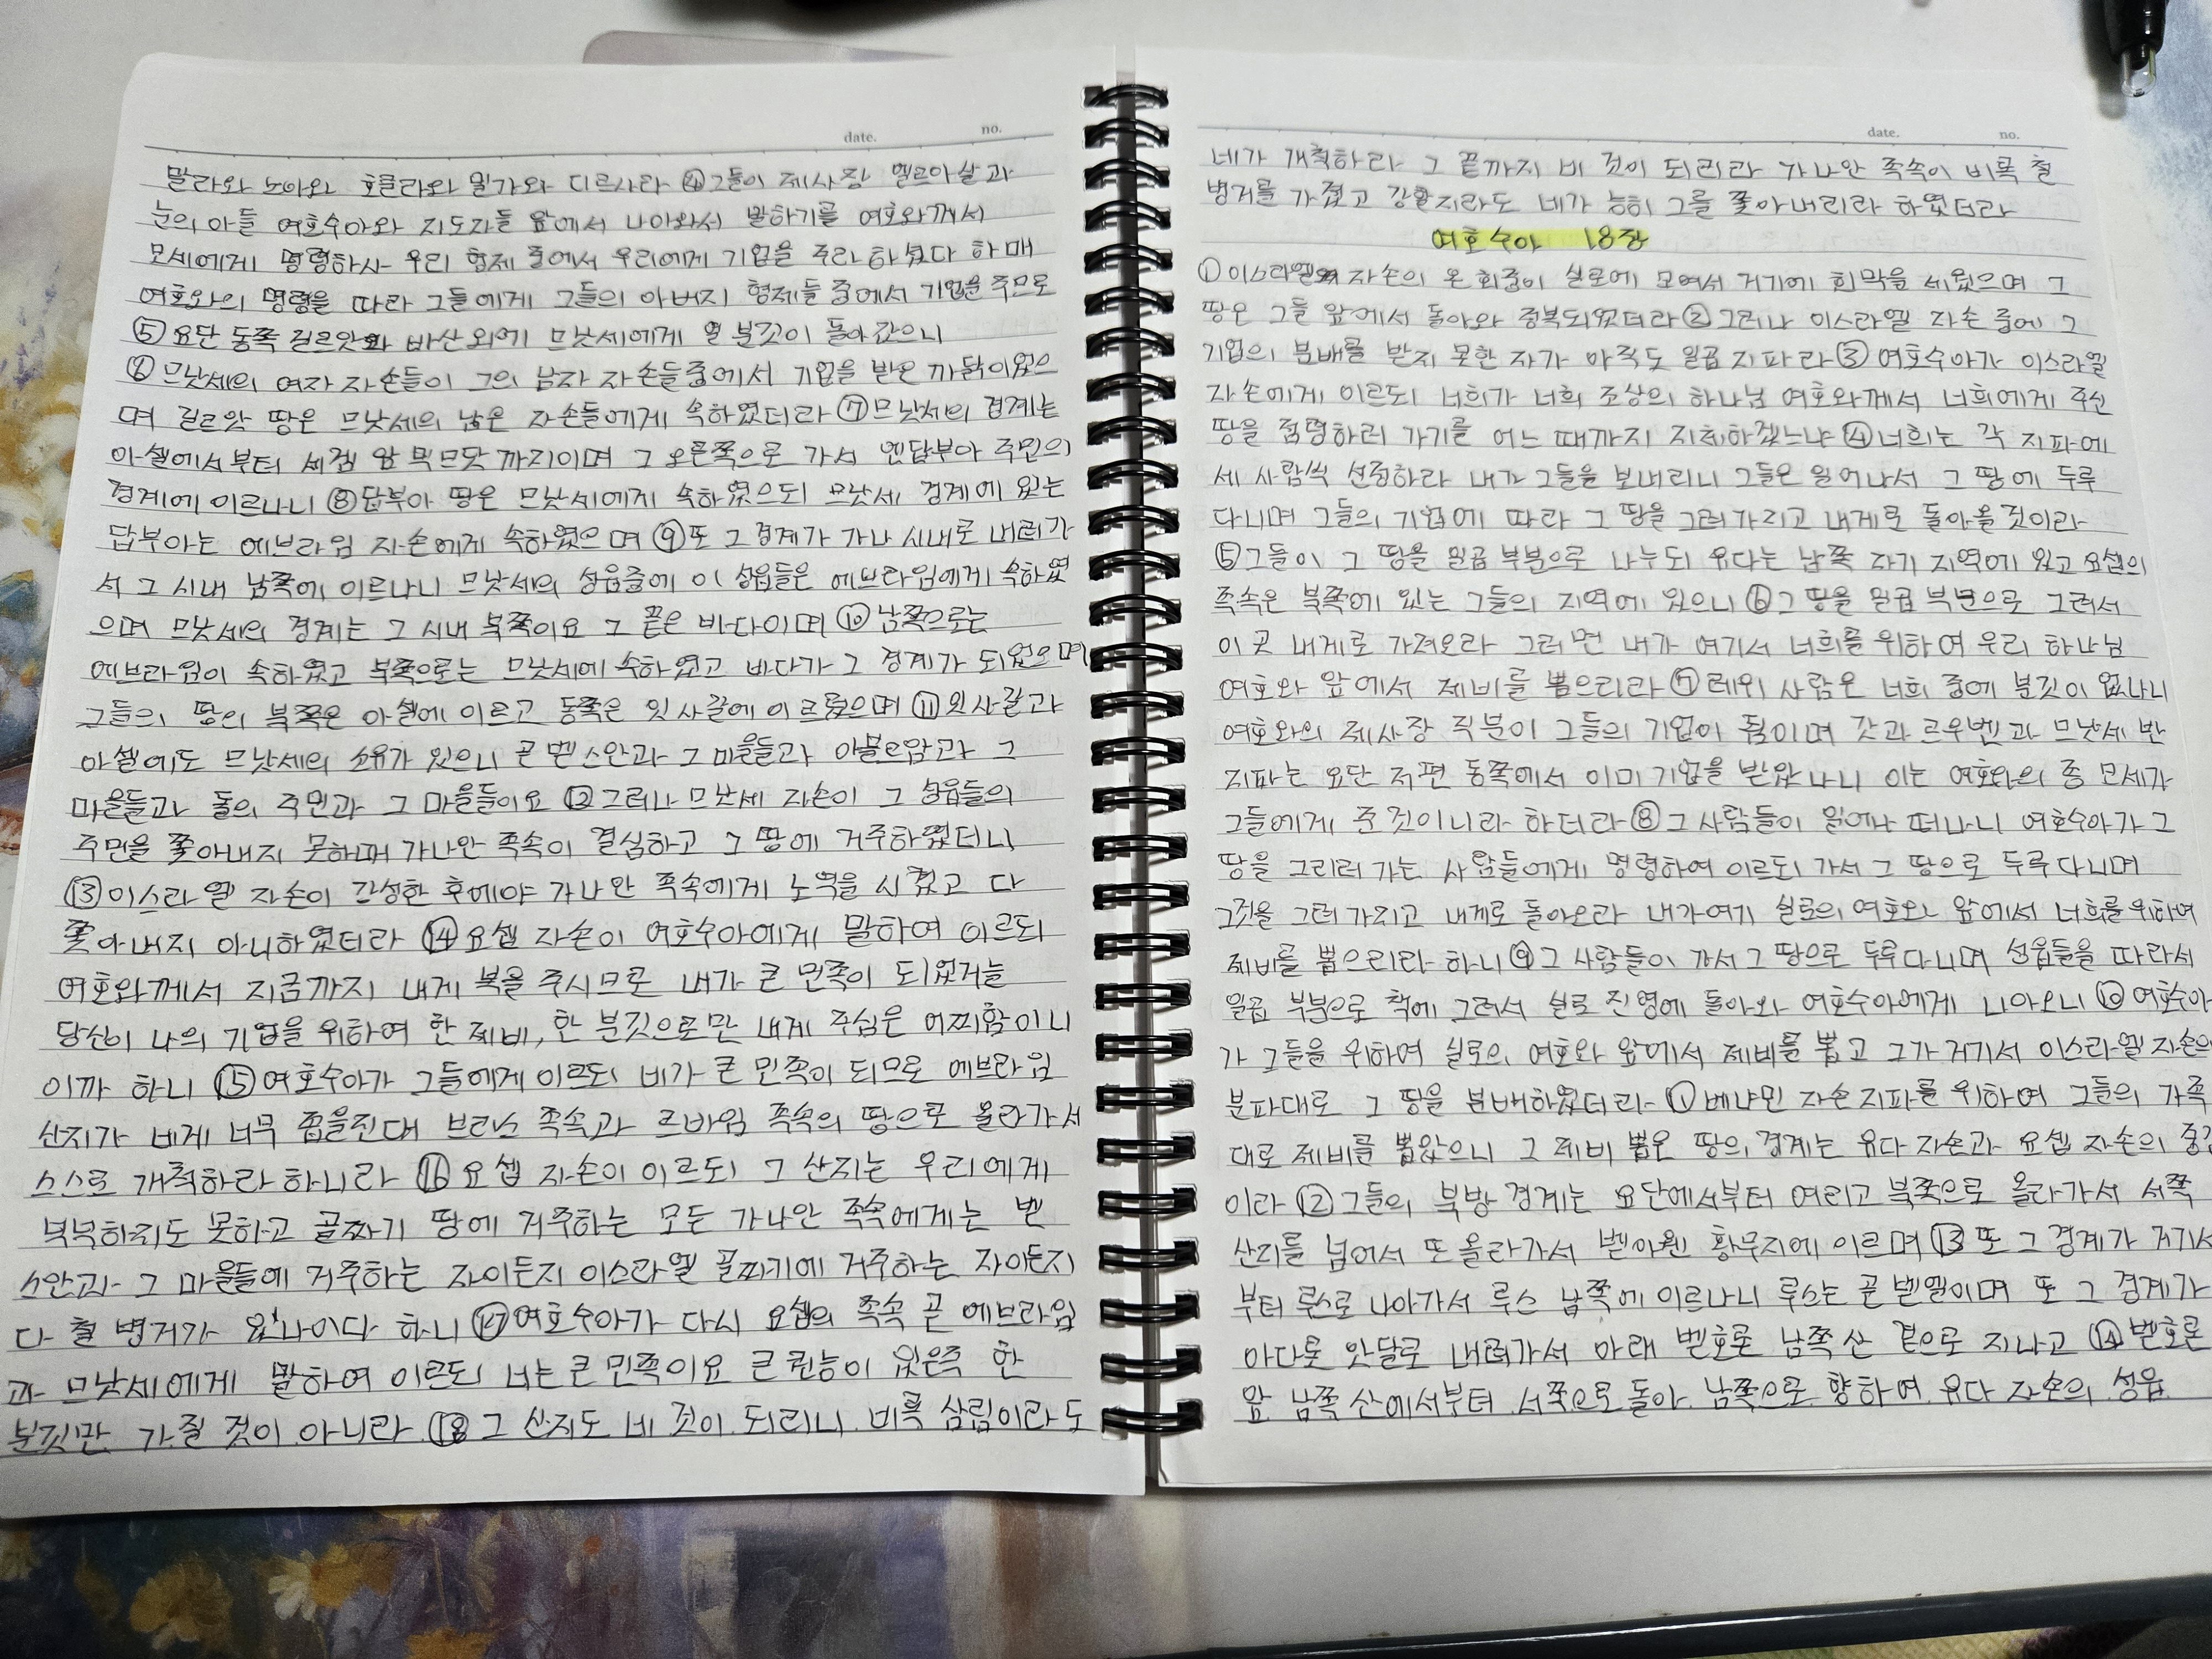 date. no.
말라와 노아와 호글라와 밀가와 디르사라 ④그들이 제사장 엘르아살과
눈의 아들 여호수아와 지도자들 앞에서 나아와서 말하기를 여호와께서
모세에게 명령하사 우리 형제 중에서 우리에게 기업을 주라 하셨다 하매
여호와의 명령을 따라 그들에게 그들의 아버지 형제들 중에서 기업을 주므로
⑤요단 동쪽 길르앗과 바산 외에 므낫세에게 열 분깃이 돌아갔으니
⑥므낫세의 여자 자손들이 그의 남자 자손들중에서 기업을 받은 까닭이었으
며 길르앗 땅은 므낫세의 남은 자손들에게 속하였더라 ⑦므낫세의 경계는
아셀에서부터 세겜 앞 믹므닷 까지이며 그 오른쪽으로 가서 엔답부아 주민의
경계에 이르나니 ⑧답부아 땅은 므낫세에게 속하였으되 므낫세 경계에 있는
답부아는 에브라임 자손에게 속하였으며 ⑨또 그 경계가 가나 시내로 내려가
서 그 시내 남쪽에 이르나니 므낫세의 성읍중에 이 성읍들은 에브라임에게 속하였
으며 므낫세의 경계는 그 시내 북쪽이요 그 끝은 바다이며 ⑩남쪽으로는
에브라임이 속하였고 북쪽으로는 므낫세에 속하였고 바다가 그 경계가 되었으며
그들의 땅의 북쪽은 아셀에 이르고 동쪽은 잇사갈에 이르렀으며 ⑪잇사갈과
아셀에도 므낫세의 소유가 있으니 곧 벧스안과 그 마을들과 이블르암과 그
마을들과 돌의 주민과 그 마을들이요 ⑫그러나 므낫세 자손이 그 성읍들의
주민을 쫓아내지 못하매 가나안 족속이 결심하고 그 땅에 거주하였더니
⑬이스라엘 자손이 강성한 후에야 가나안 족속에게 노역을 시켰고 다
쫓아내지 아니하였더라 ⑭요셉 자손이 여호수아에게 말하여 이르되
여호와께서 지금까지 내게 복을 주시므로 내가 큰 민족이 되었거늘
당신이 나의 기업을 위하여 한 제비, 한 분깃으로만 내게 주심은 어찌함이니
이까 하니 ⑮여호수아가 그들에게 이르되 네가 큰 민족이 되므로 에브라임
산지가 네게 너무 좁을진대 브리스 족속과 르바임 족속의 땅으로 올라가서
스스로 개척하라 하니라 ⑯요셉 자손이 이르되 그 산지는 우리에게
넉넉하지도 못하고 골짜기 땅에 거주하는 모든 가나안 족속에게는 벧
스안과 그 마을들에 거주하는 자이든지 이스라엘 골짜기에 거주하는 자이든지
다 철 병거가 있나이다 하니 ⑰여호수아가 다시 요셉의 족속 곧 에브라임
과 므낫세에게 말하여 이르되 너는 큰 민족이요 큰 권능이 있은즉 한
분깃만 가질 것이 아니라 ⑱그 산지도 네 것이 되리니 비록 삼림이라도
date. no.
네가 개척하라 그 끝까지 네 것이 되리라 가나안 족속이 비록 철
병거를 가졌고 강할지라도 네가 능히 그를 쫓아내리라 하였더라
여호수아 18장
①이스라엘 자손의 온 회중이 실로에 모여서 거기에 회막을 세웠으며 그
땅은 그들 앞에서 돌아와 정복되었더라 ②그러나 이스라엘 자손 중에 그
기업의 분배를 받지 못한 자가 아직도 일곱 지파라 ③여호수아가 이스라엘
자손에게 이르되 너희가 너희 조상의 하나님 여호와께서 너희에게 주신
땅을 점령하러 가기를 어느 때까지 지체하겠느냐 ④너희는 각 지파에
세 사람씩 선정하라 내가 그들을 보내리니 그들은 일어나서 그 땅에 두루
다니며 그들의 기업에 따라 그 땅을 그려 가지고 내게로 돌아올것이라
⑤그들이 그 땅을 일곱 부분으로 나누되 유다는 남쪽 자기 지역에 있고 요셉의
족속은 북쪽에 있는 그들의 지역에 있으니 ⑥그 땅을 일곱 부분으로 그려서
이 곳 내게로 가져오라 그러면 내가 여기서 너희를 위하여 우리 하나님
여호와 앞에서 제비를 뽑으리라 ⑦레위 사람은 너희 중에 분깃이 없나니
여호와의 제사장 직분이 그들의 기업이 됨이며 갓과 르우벤과 므낫세 반
지파는 요단 저편 동쪽에서 이미 기업을 받았나니 이는 여호와의 종 모세가
그들에게 준 것이니라 하더라 ⑧그 사람들이 일어나 떠나니 여호수아가 그
땅을 그리러 가는 사람들에게 명령하여 이르되 가서 그 땅으로 두루 다니며
그것을 그려 가지고 내게로 돌아오라 내가여기 실로의 여호와 앞에서 너희를 위하여
제비를 뽑으리라 하니 ⑨그 사람들이 가서 그 땅으로 두루 다니며 성읍들을 따라서
일곱 부분으로 책에 그려서 실로 진영에 돌아와 여호수아에게 나아오니 ⑩여호수아
가 그들을 위하여 실로의 여호와 앞에서 제비를 뽑고 그가 거기서 이스라엘 자손의
분파대로 그 땅을 분배하였더라 ⑪베냐민 자손 지파를 위하여 그들의 가족
대로 제비를 뽑았으니 그 제비 뽑은 땅의 경계는 유다 자손과 요셉 자손의 중간
이라 ⑫그들의 북방 경계는 요단에서부터 여리고 북쪽으로 올라가서 서쪽
산지를 넘어서 또 올라가서 벧아웬 황무지에 이르며 ⑬또 그 경계가 거기서
부터 루스로 나아가서 루스 남쪽에 이르나니 루스는 곧 벧엘이며 또 그 경계가
아다롯 앗달로 내려가서 아래 벧호론 남쪽 산 곁으로 지나고 ⑭벧호론
앞 남쪽 산에서부터 서쪽으로 돌아 남쪽으로 향하여 유다 자손의 성읍